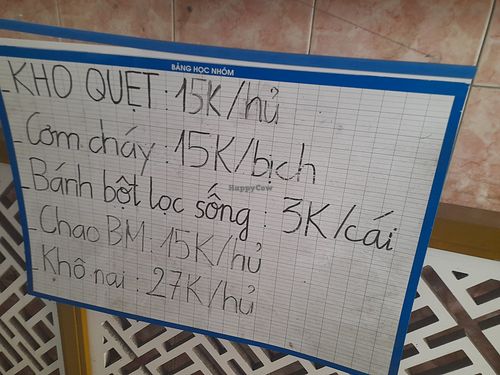 BẢNG HỌC NHÓM
- KHO QUẸT : 15K/hủ
- Cơm cháy : 15K/bịch
- Bánh bột lọc sống : 3K/cái
- Chao BM : 15K/hủ
- Khô nai : 27K/hủ
HappyCow